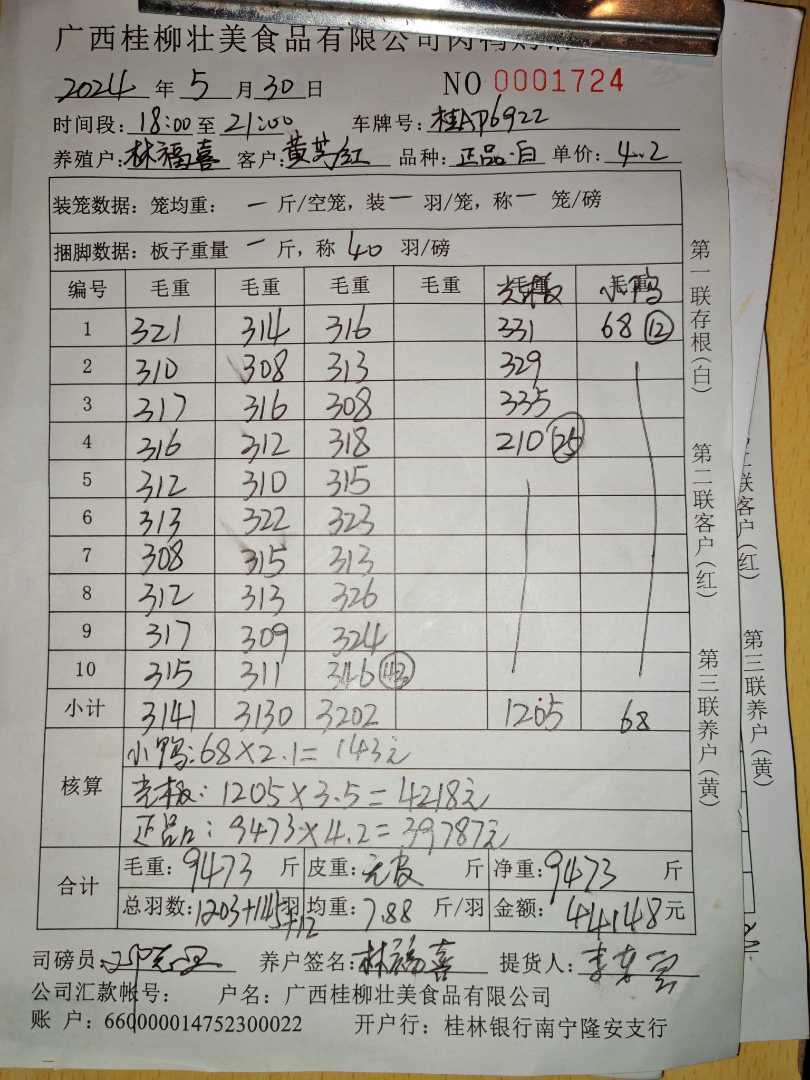 广西桂柳壮美食品有限公司肉鸭购销
2024 年 5 月 30 日 NO 0001724
时间段: 18:00 至 21:00 车牌号: 桂AP6922
养殖户: 林福喜 客户: 黄 红 品种: 正品·白 单价: 4.2
装笼数据: 笼均重: 一 斤/空笼, 装 一 羽/笼, 称 一 笼/磅
捆脚数据: 板子重量 一 斤, 称 40 羽/磅
编号 毛重 毛重 毛重 毛重 光板 小鸭
1 321 314 316 331 68 ⑫
2 310 308 313 329
3 317 316 308 335
4 316 312 318 210 25
5 312 310 315
6 313 322 323
7 308 315 313
8 312 313 326
9 317 309 324
10 315 311 346 43
小计 3141 3130 3202 1205 68
核算
小鸭: 68×2.1= 143元
光板: 1205×3.5=4218元
正品: 9473×4.2=39787元
合计
毛重: 9473 斤 皮重: 无皮 斤 净重: 9473 斤
总羽数: 1203+145+12 羽 均重: 7.88 斤/羽 金额: 44148 元
司磅员: 养户签名: 林福喜 提货人: 李
公司汇款帐号: 户名: 广西桂柳壮美食品有限公司
账 户: 660000014752300022 开户行: 桂林银行南宁隆安支行
第一联存根(白)
第二联客户(红)
第三联养户(黄)
联客户(红)
第三联养户(黄)